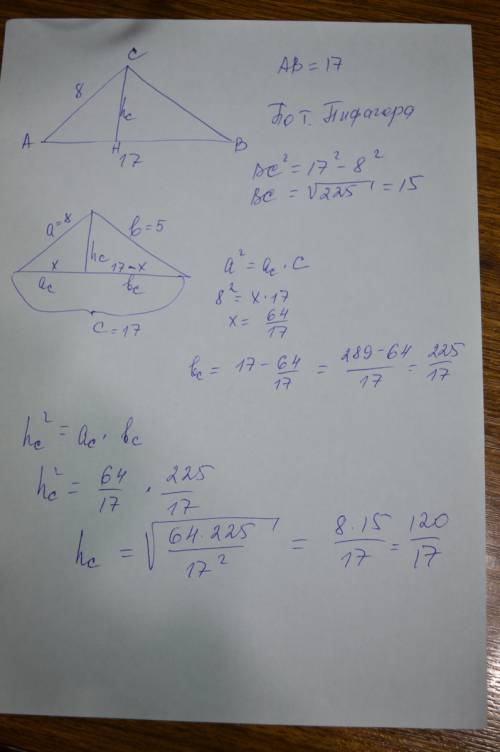 C
8
h_c
A H B
17
AB = 17
По т. Пифагора
BC² = 17² - 8²
BC = √225 = 15
a=8 b=5
h_c
x 17-x
a_c b_c
c = 17
a² = a_c · c
8² = x · 17
x = 64/17
b_c = 17 - 64/17 = (289-64)/17 = 225/17
h_c² = a_c · b_c
h_c² = 64/17 · 225/17
h_c = √(64·225/17²) = 8·15/17 = 120/17